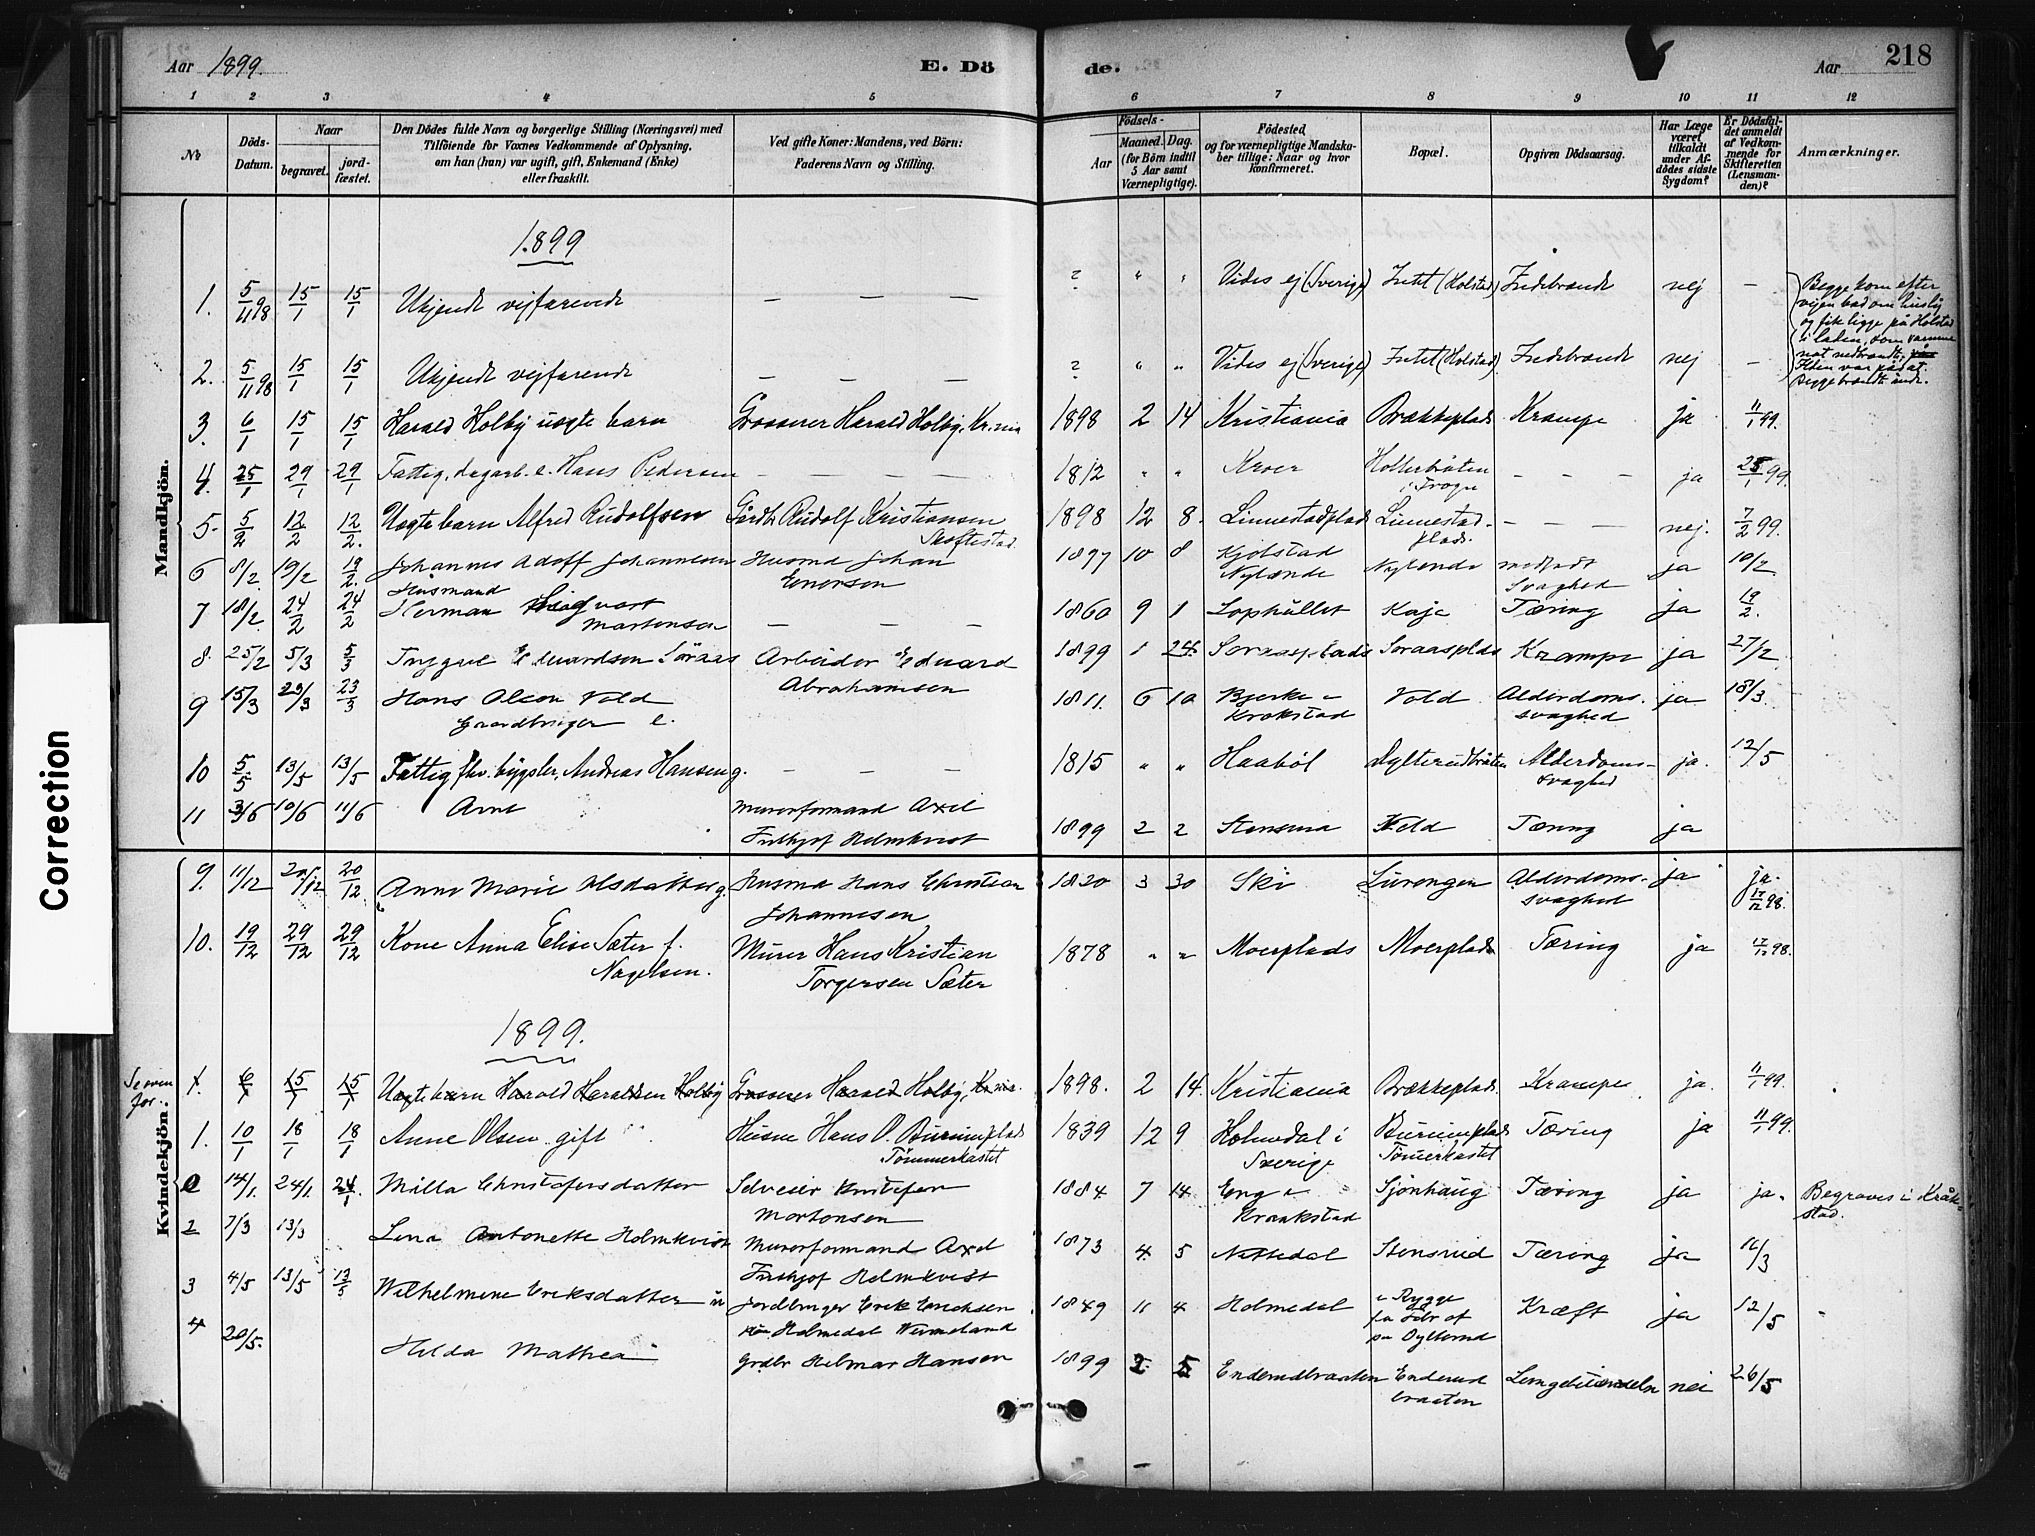 Aar 1899.
E. Döde.
Aar
218
1 2 3 4 5 6 7 8 9 10 11 12
No
Döds-Datum.
Naar
begravet.
jordfæstet.
Den Dödes fulde Navn og borgerlige Stilling (Næringsvei) med
Tilföiende for Voxnes Vedkommende af Oplysning,
om han (hun) var ugift, gift, Enkemand (Enke)
eller fraskilt.
Ved gifte Koner: Mandens, ved Börn:
Faderens Navn og Stilling.
Födsels-
Aar
Maaned. Dag.
(for Börn indtil
5 Aar samt
Værnepligtige).
Födested,
og for værnepligtige Mandskaber tillige: Naar og hvor
konfirmeret.
Bopæl.
Opgiven Dödsaarsag.
Har Læge
været
tilkaldt
under Afdödes sidste
Sygdom?
Er Dödsfaldet anmeldt
af Vedkommende for
Skifteretten
(Lensmanden)?
Anmærkninger.
Mandkjön.
1899
1. 5/11 98 15/1 15/1 Ukjendt vejfarende — — — ? " " Vides ej (Sverige) Intet (Holstad) Indebrændt nej —
Begge kom efter
vejen bad om husly
og fik ligge på Holstad
i laden, som samme
nat nedbrændte,
Begge brændte inde.
2. 5/11 98 15/1 15/1 Ukjendt vejfarende — — — ? " " Vides ej (Sverige) Intet (Holstad) Indebrændt nej —
3. 6/1 15/1 15/1 Harald Holby uægte barn Grosserer Harald Holby, Kr.nia 1898 2 14 Kristiania Brækkeplads Krampe ja 11/1 99.
4. 25/1 29/1 29/1 Fattig, dagarb. e. Hans Pedersen — — — 1812 " " Kroer Hollerbråten
i Frogn — — — ja 25/1 99.
5. 5/2 12/2 12/2. Uægte barn Alfred Rudolfsen Gårdbr. Rudolf Kristiansen
Skoftestad. 1898 12 8. Linnestadplads Linnestad-
plads. — — — nej. 7/2 99.
6 8/2. 19/2 19/2. Johannes Adolf Johannesen Husmd Johan
Enersen 1897 10 8 Kjolstad
Nylænde Nylænde medfødt
Svaghed ja 10/2.
7 18/2. 24/2 24/2 Husmand
Herman Sigvart
Martensen — — — 1860 9 1 Kaja Tæring ja 19/2.
8. 25/2 5/3 5/3 Trygve Eduardsen Soraas Arbeider Eduard
Abrahamsen 1899 1 24. Soraasplads Soraasplds Krampe ja 27/2
9 15/3 23/3 23/3 Hans Olsen Vold
Gaardbruger e. 1811. 6 10 Bjerke i
Krokstad Vold Alderdoms-
svaghed ja 18/3.
10 5/5 13/5 13/5 Fattig fhv. bygsler, Andreas Hansen g. — — — 1815 " " Haaböl Dylterudbråten Alderdoms-
svaghed ja. 12/5
11 3/6 10/6 11/6 Arnt Murerformand Axel
Frithjof Holmkvist 1899 2 2 Tæring ja
Kvindekjön.
9. 11/12 20/12 20/12. Anne Marie Olsdatter g. Husmd Hans Christian
Johannesen 1820 3 30 Ski Lurengen Alderdoms-
svaghed ja ja.
17/12 98.
10. 19/12 29/12 29/12 Kone Anna Elise Sæter f.
Nagelsen. Murer Hans Kristian
Torgersen Sæter 1878 " " Moerplads Moerplads Tæring ja 98.
1899.
Se oven
for.
1. 6/1 15/1 15/1 Uægte barn Harald Haraldsen Holby Grosserer Harald Holby, Kr.nia. 1898. 2 14. Kristiania Brækkeplads. Krampe ja. 11/1 99.
1. 10/1 18/1 18/1 Anne Olsen gift Husm Hans O. Burumplads
Tömmerkastet 1839 12 9 Holmedal i
Sverige Burumplads
Tömerkastet Tæring ja 11/1 99.
14/1. 24/1. 24/1. Milla Christofersdatter Selveier Kristofer
Mortensen 1884 7 14 Eng i
Kraakstad Sjönhaug Tæring ja ja. Begraves i Kråk-
stad.
2 7/3 13/3 Lina Antonette Holmkvist Murerformand Axel
Frithjof Holmkvist 1873 4. 5 Nittedal Stensrud Tæring ja 11/3
3 4/5 13/5 13/5 Wilhelmine Eriksdatter u Jordbruger Erik Erichsen
Holmedal Vermeland 1849 11 4 Holmedal i Rygge
Kræft ja 12/5
4 20/5. Hilda Mathea Grdbr Hilmar Hansen 1899 2. 5 Enderudbraaten Enderud
braaten Lungebetændelse nei 26/5
Correction